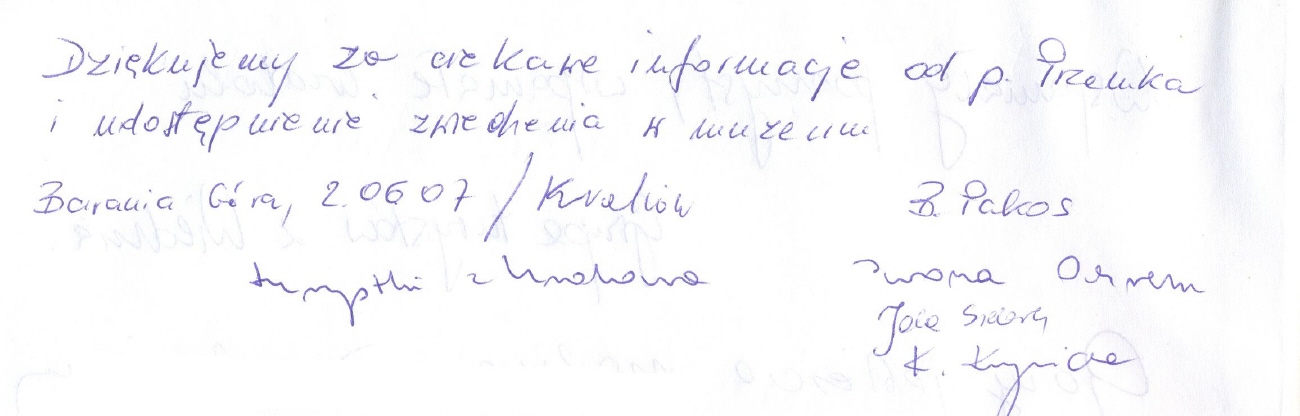 Dziękujemy za ciekawe informacje od p. Przemka
i udostępnienie zwiedzenia w muzeum
Barania Góra, 2.06 07 / Kraków
B. Pakos
turystki z Krakowa
Iwona